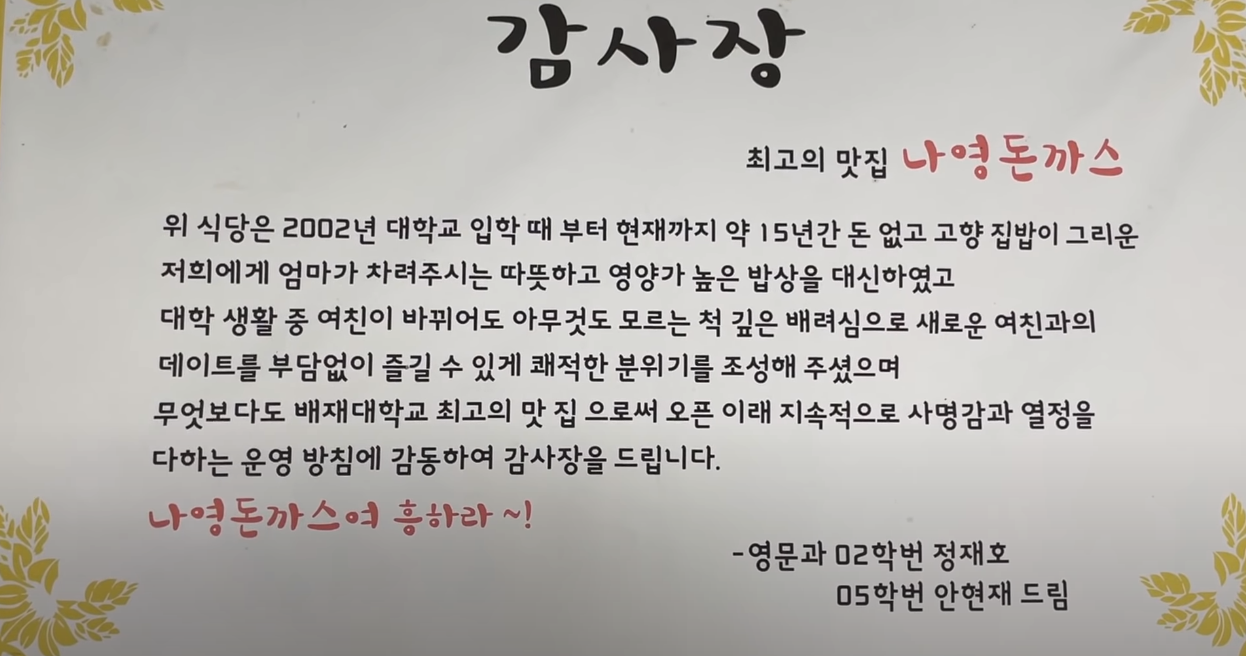 감사장
최고의 맛집 나영돈까스
위 식당은 2002년 대학교 입학 때 부터 현재까지 약 15년간 돈 없고 고향 집밥이 그리운
저희에게 엄마가 차려주시는 따뜻하고 영양가 높은 밥상을 대신하였고
대학 생활 중 여친이 바뀌어도 아무것도 모르는 척 깊은 배려심으로 새로운 여친과의
데이트를 부담없이 즐길 수 있게 쾌적한 분위기를 조성해 주셨으며
무엇보다도 배재대학교 최고의 맛 집 으로써 오픈 이래 지속적으로 사명감과 열정을
다하는 운영 방침에 감동하여 감사장을 드립니다.
나영돈까스여 흥하라 ~!
-영문과 02학번 정재호
05학번 안현재 드림